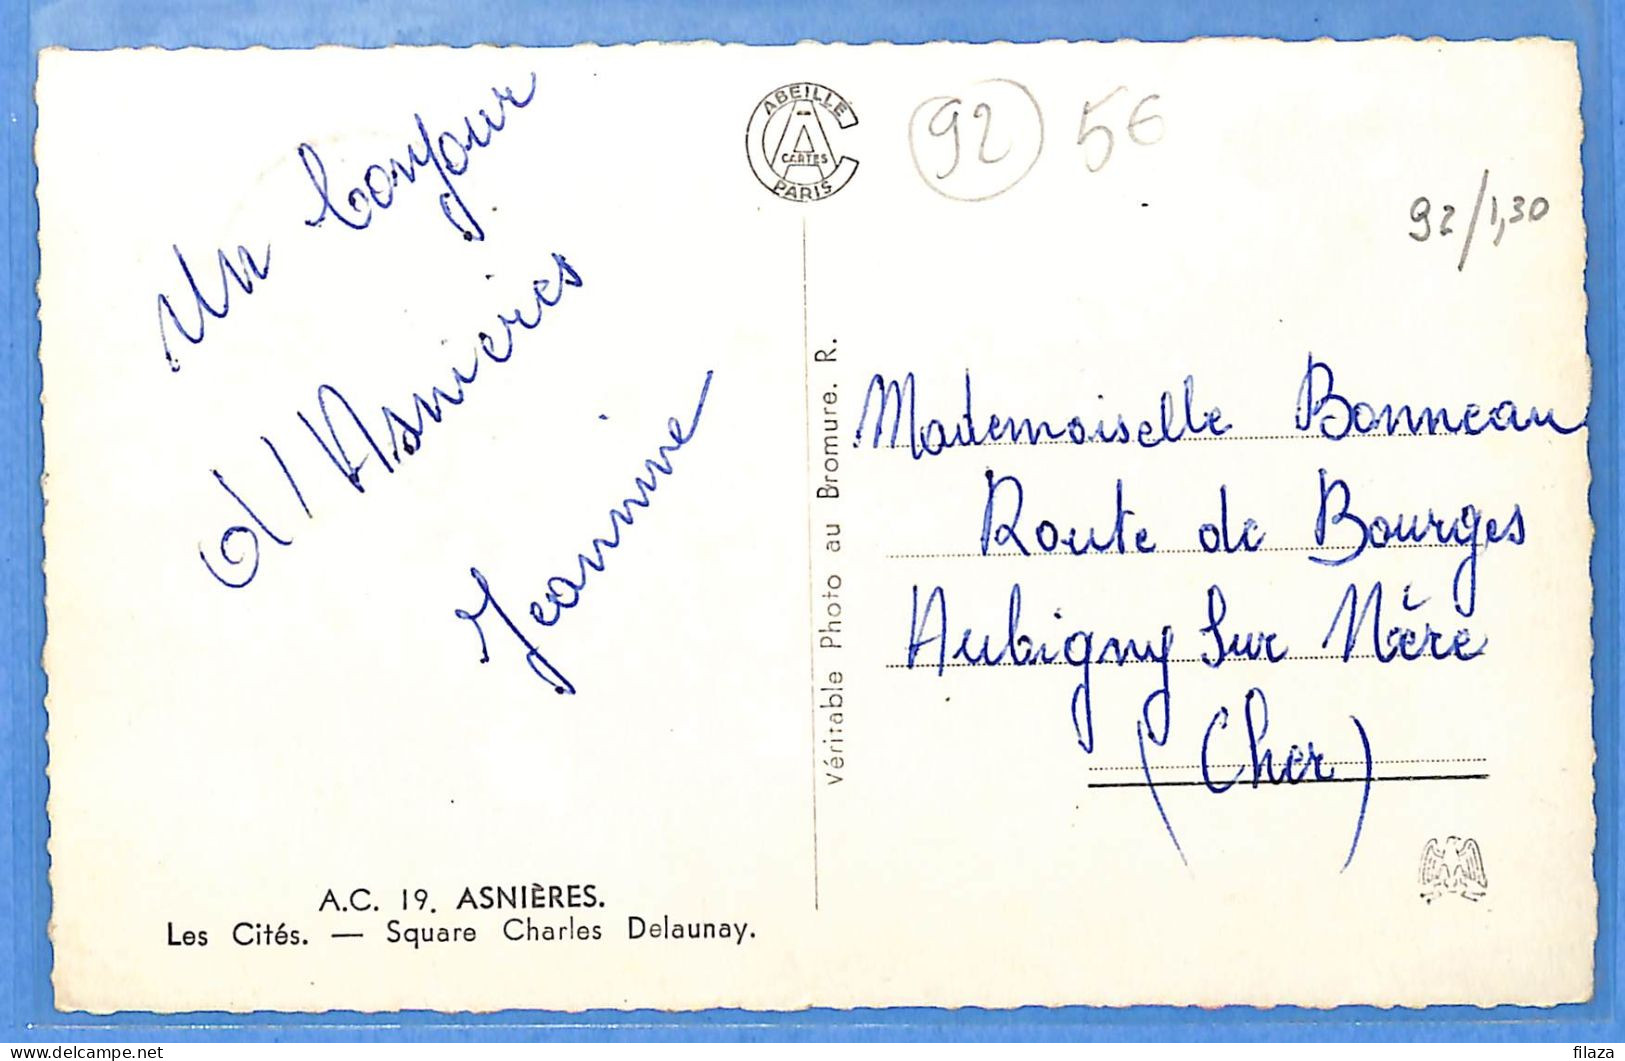 Un bonjour
d'Asnieres
Jeannine
A.C. 19. ASNIÈRES.
Les Cités. — Square Charles Delaunay.
ABEILLE
CARTES
PARIS
Véritable Photo au Bromure. R.
92 56
92/1,30
Mademoiselle Bonneau
Route de Bourges
Aubigny Sur Nère
(Cher)
filaza
delcampe.net